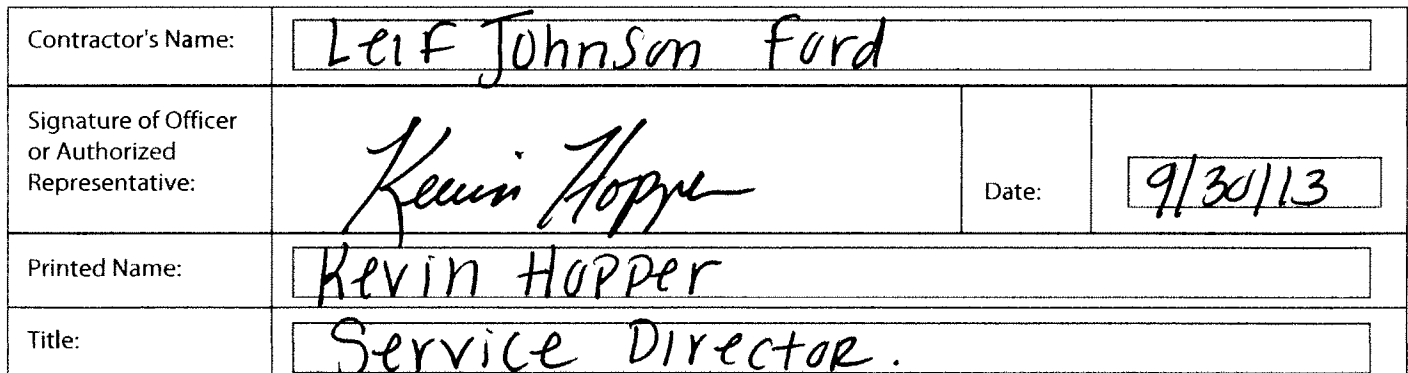 Contractor's Name: Leif Johnson Ford
Signature of Officer
or Authorized
Representative: Kevin Hopper Date: 9/30/13
Printed Name: Kevin Hopper
Title: Service Director.